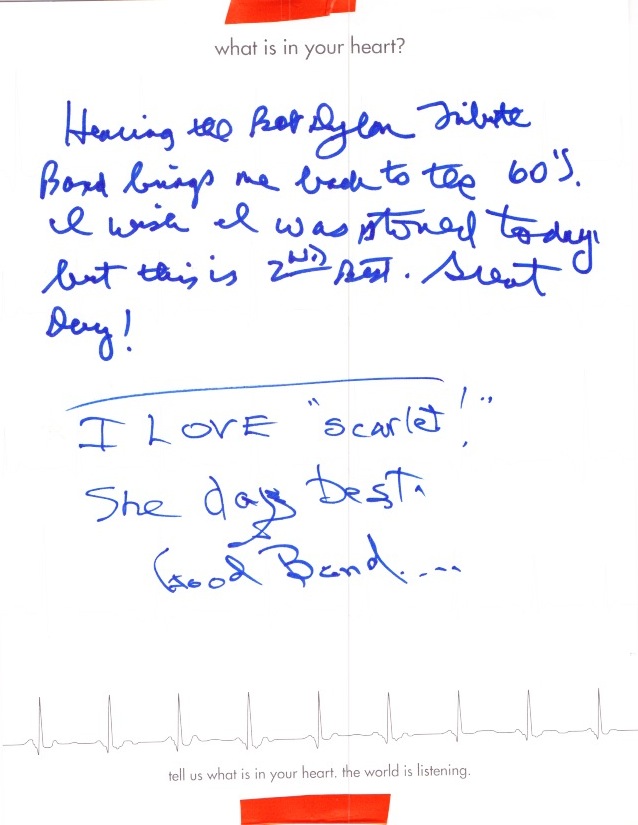 what is in your heart?
Hearing the Bob Dylan Tribute
Band brings me back to the 60'S.
I wish I was stoned today
but this is 2ND Best. Great
Day!
I LOVE "scarlet!"
She days best.
Good Band....
tell us what is in your heart. the world is listening.